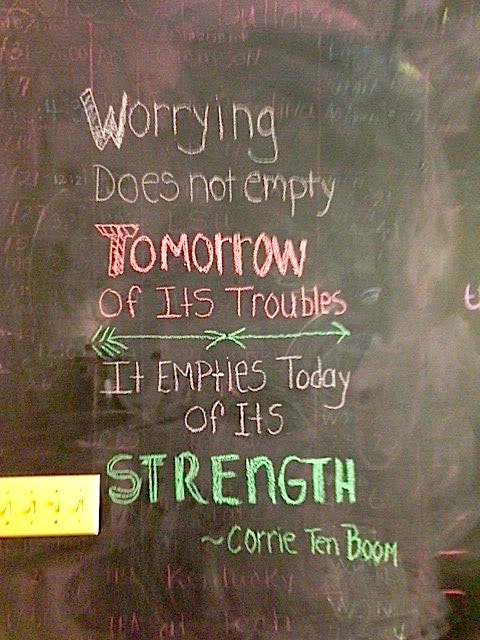 Worrying
Does not empty
Tomorrow
Of Its Troubles
It Empties Today
Of Its
STRENGTH
~Corrie Ten Boom
Kentucky